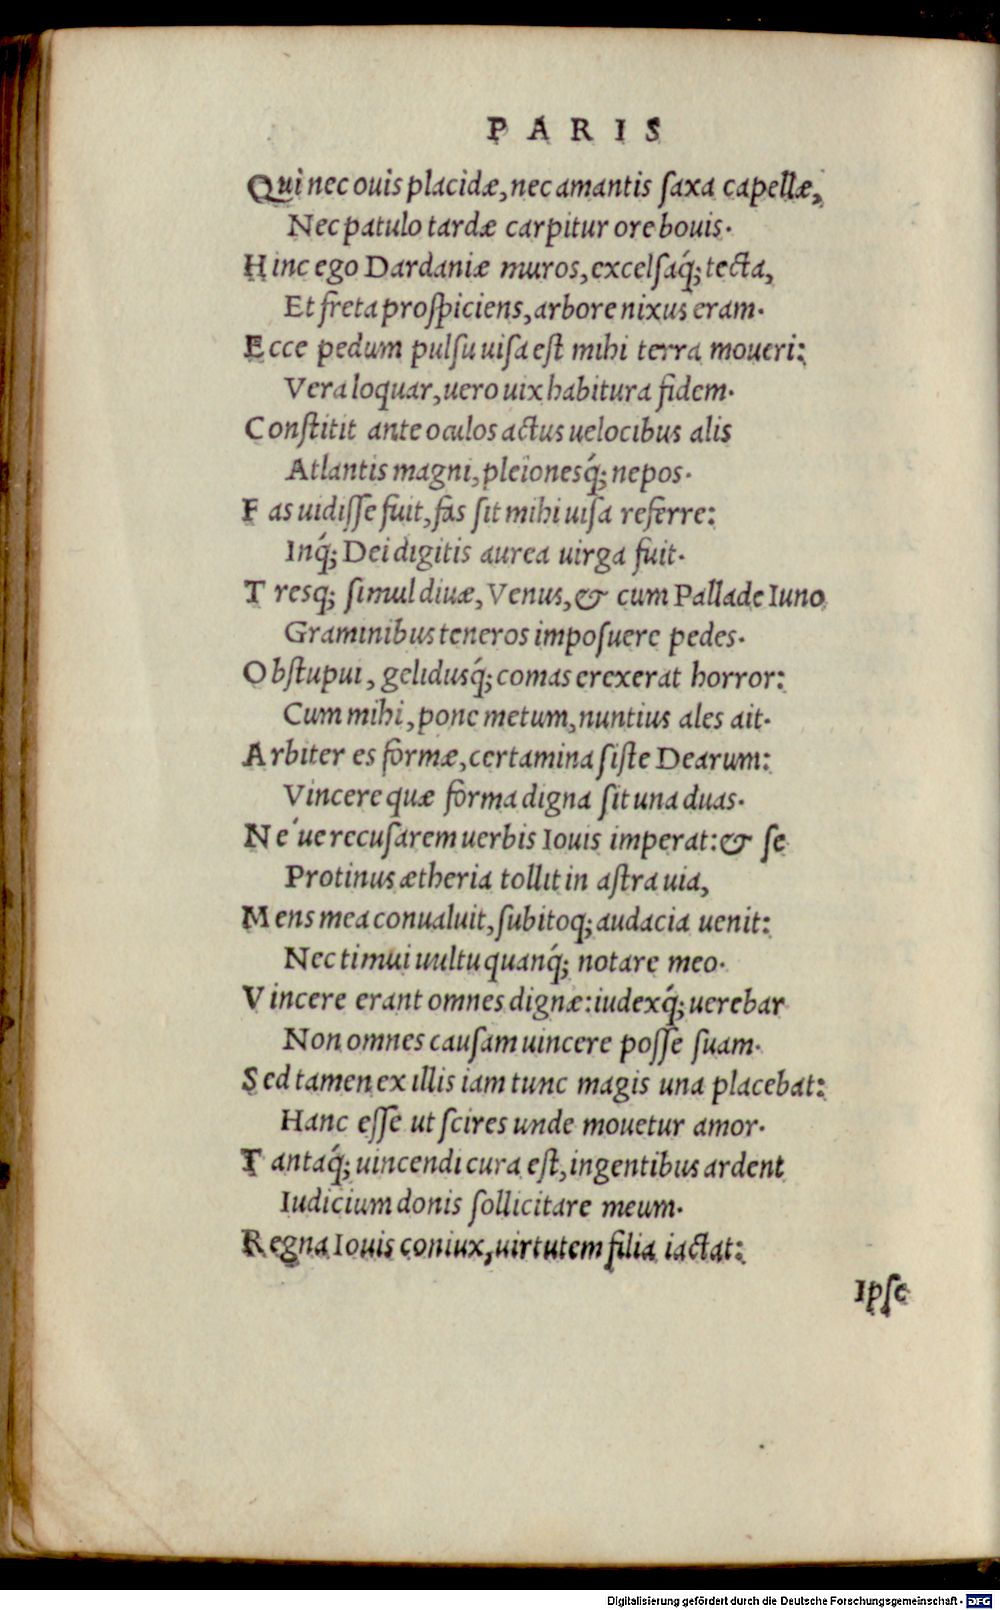 PARIS
Qui nec ouis placidæ, nec amantis ſaxa capellæ,
Nec patulo tardæ carpitur ore bouis.
Hinc ego Dardaniæ muros, excelſaq́; tecta,
Et freta proſpiciens, arbore nixus eram.
Ecce pedum pulſu uiſa eſt mihi terra moueri:
Vera loquar, uero uix habitura fidem.
Conſtitit ante oculos actus uelocibus alis
Atlantis magni, pleïonesq́; nepos.
Fas uidiſſe fuit, fas ſit mihi uiſa referre:
Inq́; Dei digitis aurea uirga fuit.
Tresq; ſimul diuæ, Venus, & cum Pallade Iuno
Graminibus teneros impoſuere pedes.
Obſtupui, gelidusq́; comas erexerat horror:
Cum mihi, pone metum, nuntius ales ait.
Arbiter es formæ, certamina ſiſte Dearum:
Vincere quæ forma digna ſit una duas.
Ne´ue recuſarem uerbis Iouis imperat: & ſe
Protinus ætheria tollit in aſtra uia,
Mens mea conualuit, ſubitoq; audacia uenit:
Nec timui uultu quanq́; notare meo.
Vincere erant omnes dignæ: iudexq́; uerebar
Non omnes cauſam uincere poſſe ſuam.
Sed tamen ex illis iam tunc magis una placebat:
Hanc eſſe ut ſcires unde mouetur amor.
Tantaq́; uincendi cura eſt, ingentibus ardent
Iudicium donis ſollicitare meum.
Regna Iouis coniux, uirtutem filia iactat:
Ipſe
Digitalisierung gefördert durch die Deutsche Forschungsgemeinschaft - DFG